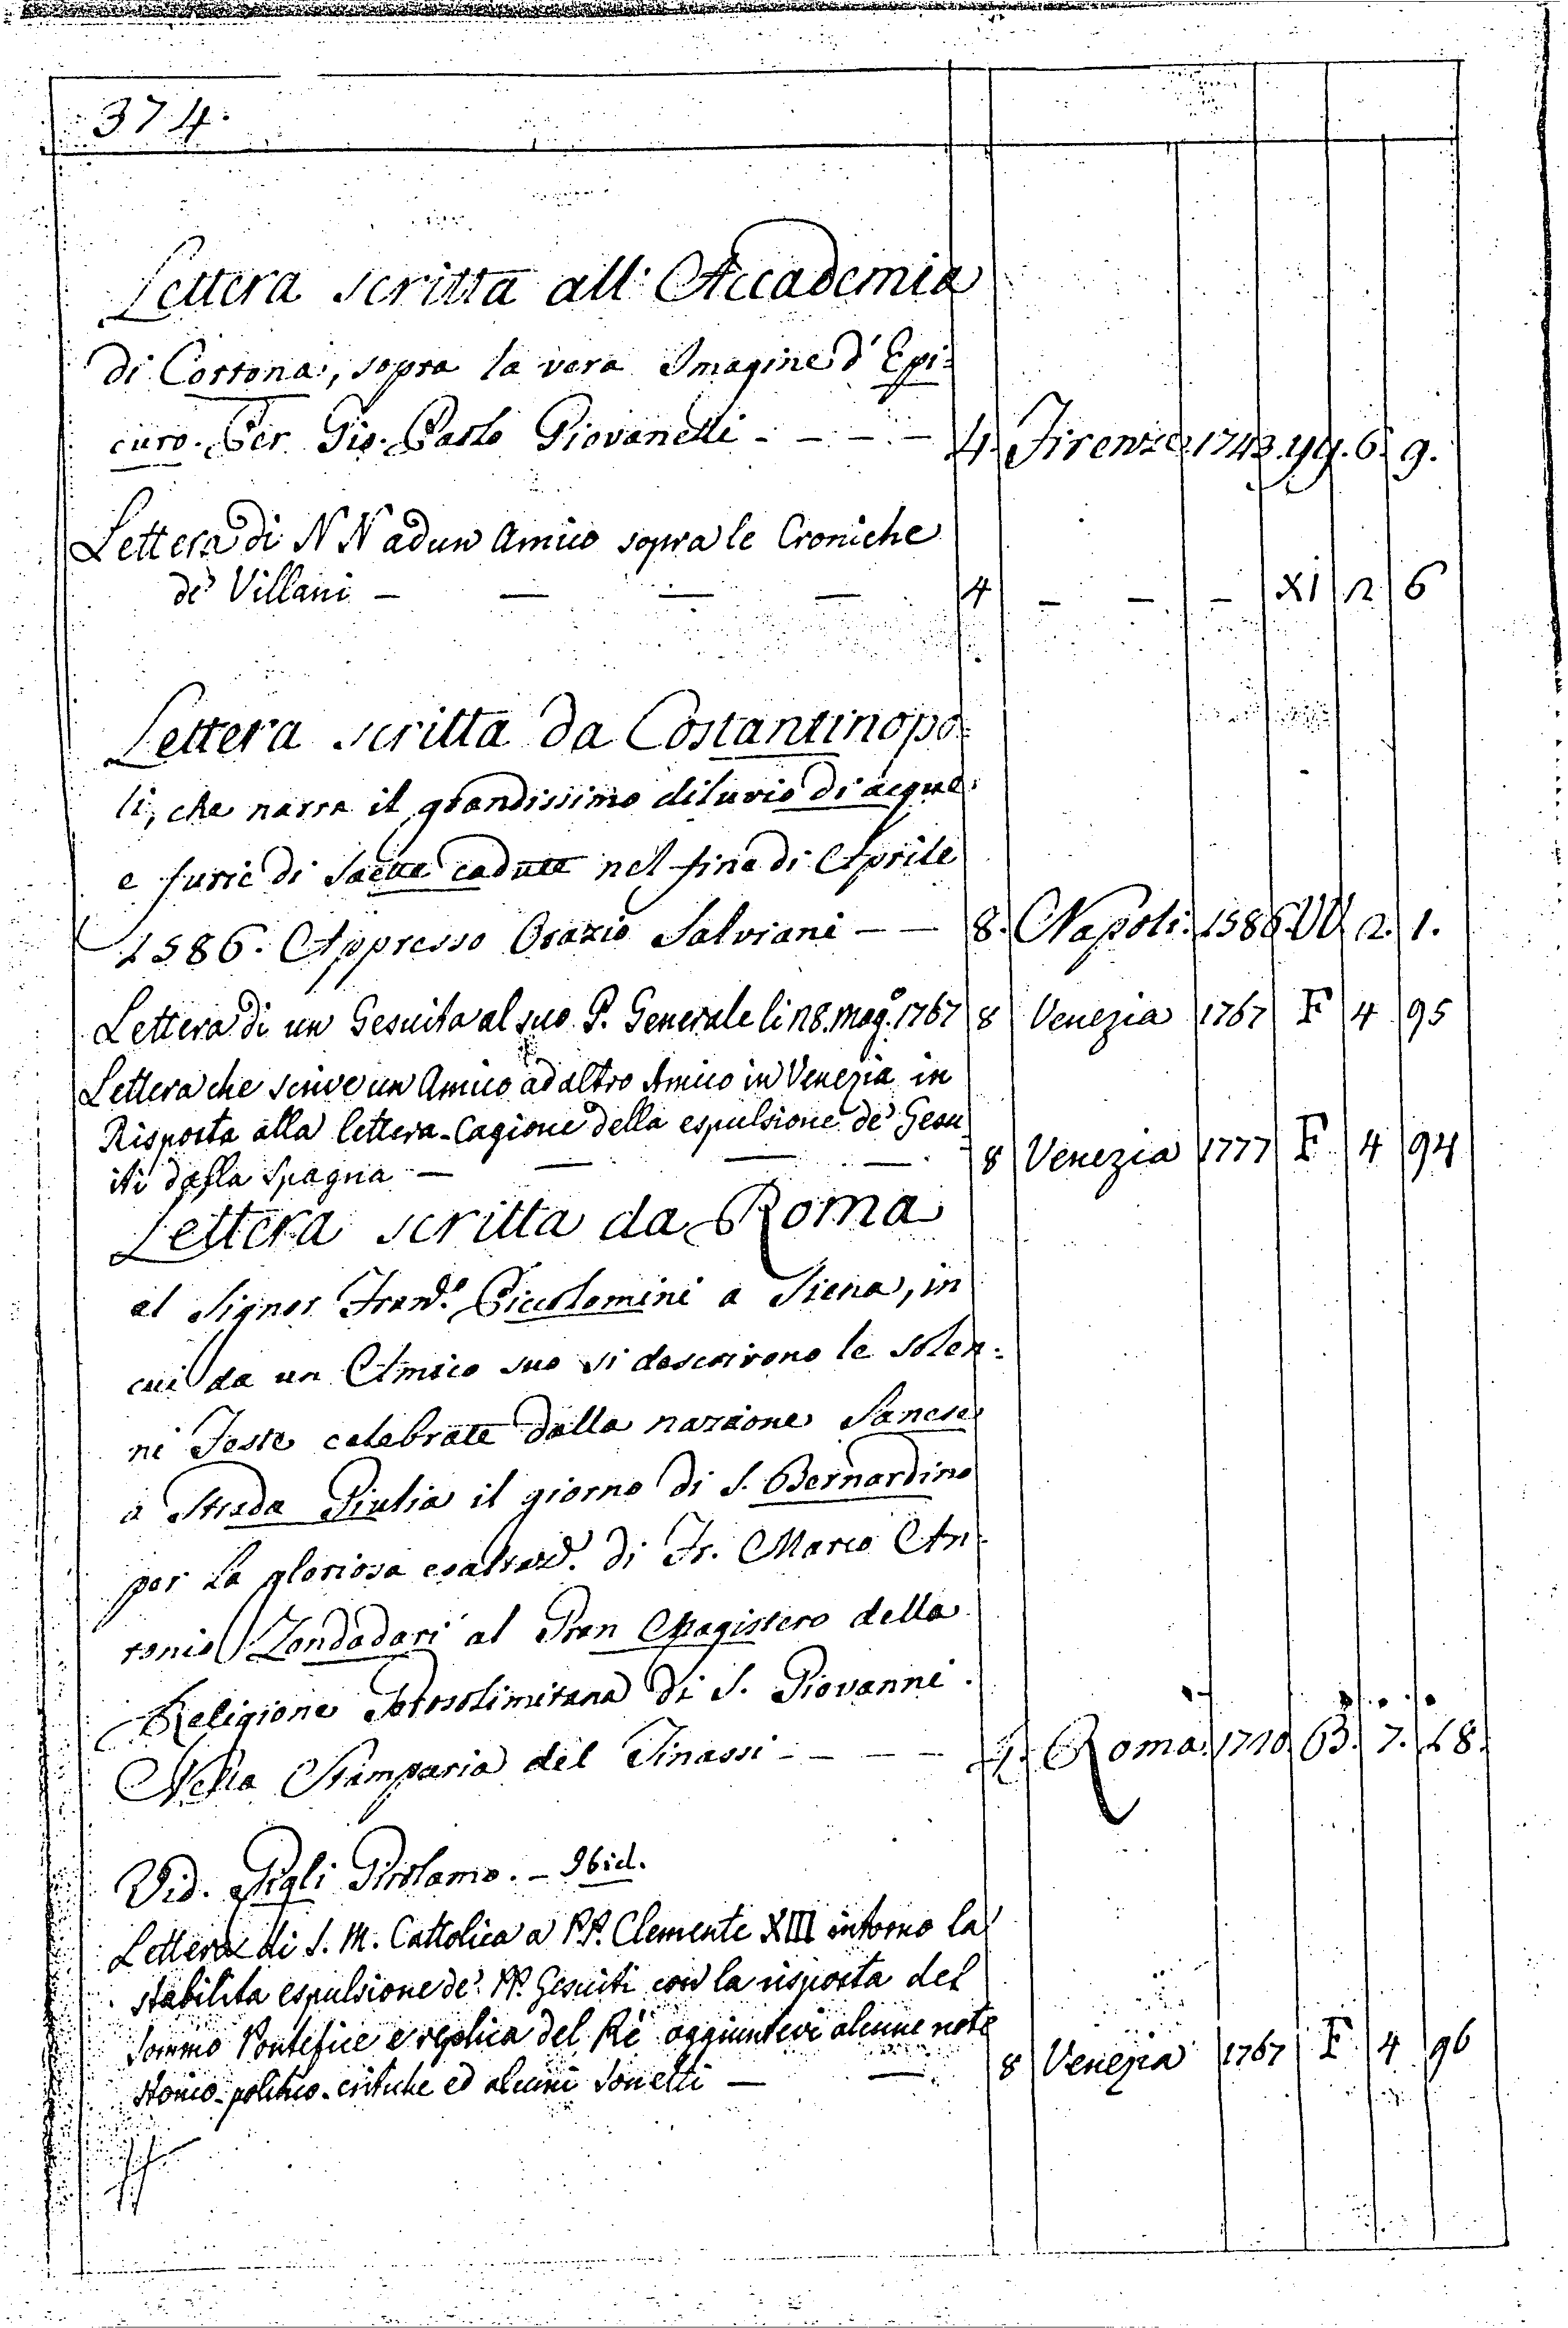 374.
Lettera scritta all' Accademia
di Cortona, sopra la vera Imagine d' Epi-
curo. Per Gio. Paolo Giovanelli - - - - 4. Firenze. 1743. yy. 6. 9.
Lettera di N N ad un Amico sopra le Croniche
de' Villani - — — — 4 - - - XI 2 6
Lettera scritta da Costantinopo=
li, che narra il grandissimo diluvio di acque.
e furie di Saette cadute nel fine di Aprile
1586. Appresso Orazio Salviani - - 8. Napoli. 1586. VV 2. 1.
Lettera di un Gesuita al suo P. Generale li 28. Mag.º 1767 8 Venezia 1767 F 4 95
Lettera che scrive un Amico ad altro Amico in Venezia in
Risposta alla lettera-Cagione della espulsione de' Gesu-
iti dalla Spagna — — — — 8 Venezia 1777 F 4 94
Lettera scritta da Roma
al Signor Fran.º Piccolomini a Siena, in
cui da un Amico suo si descrivono le solen=
ni Feste celebrate dalla nazione Sanese
a Strada Giulia il giorno di S. Bernardino
per La gloriosa di Fr. Marco An-
tonio Zondadari al Gran Magistero della
Religione Jerosolimitana di S. Giovanni.
Nella Stamparia del Tinassi - - - - 4. Roma. 1720. B. 7. 18.
Vid. Gigli Girolamo. - Ibid.
Lettera di S. M. Cattolica a PP. Clemente XIII intorno la
stabilita espulsione de' PP. Gesuiti con la risposta del
Sommo Pontefice e replica del Rè aggiuntevi alcune note
storico-politico-critiche ed alcuni Sonetti — — 8 Venezia 1767 F 4 96